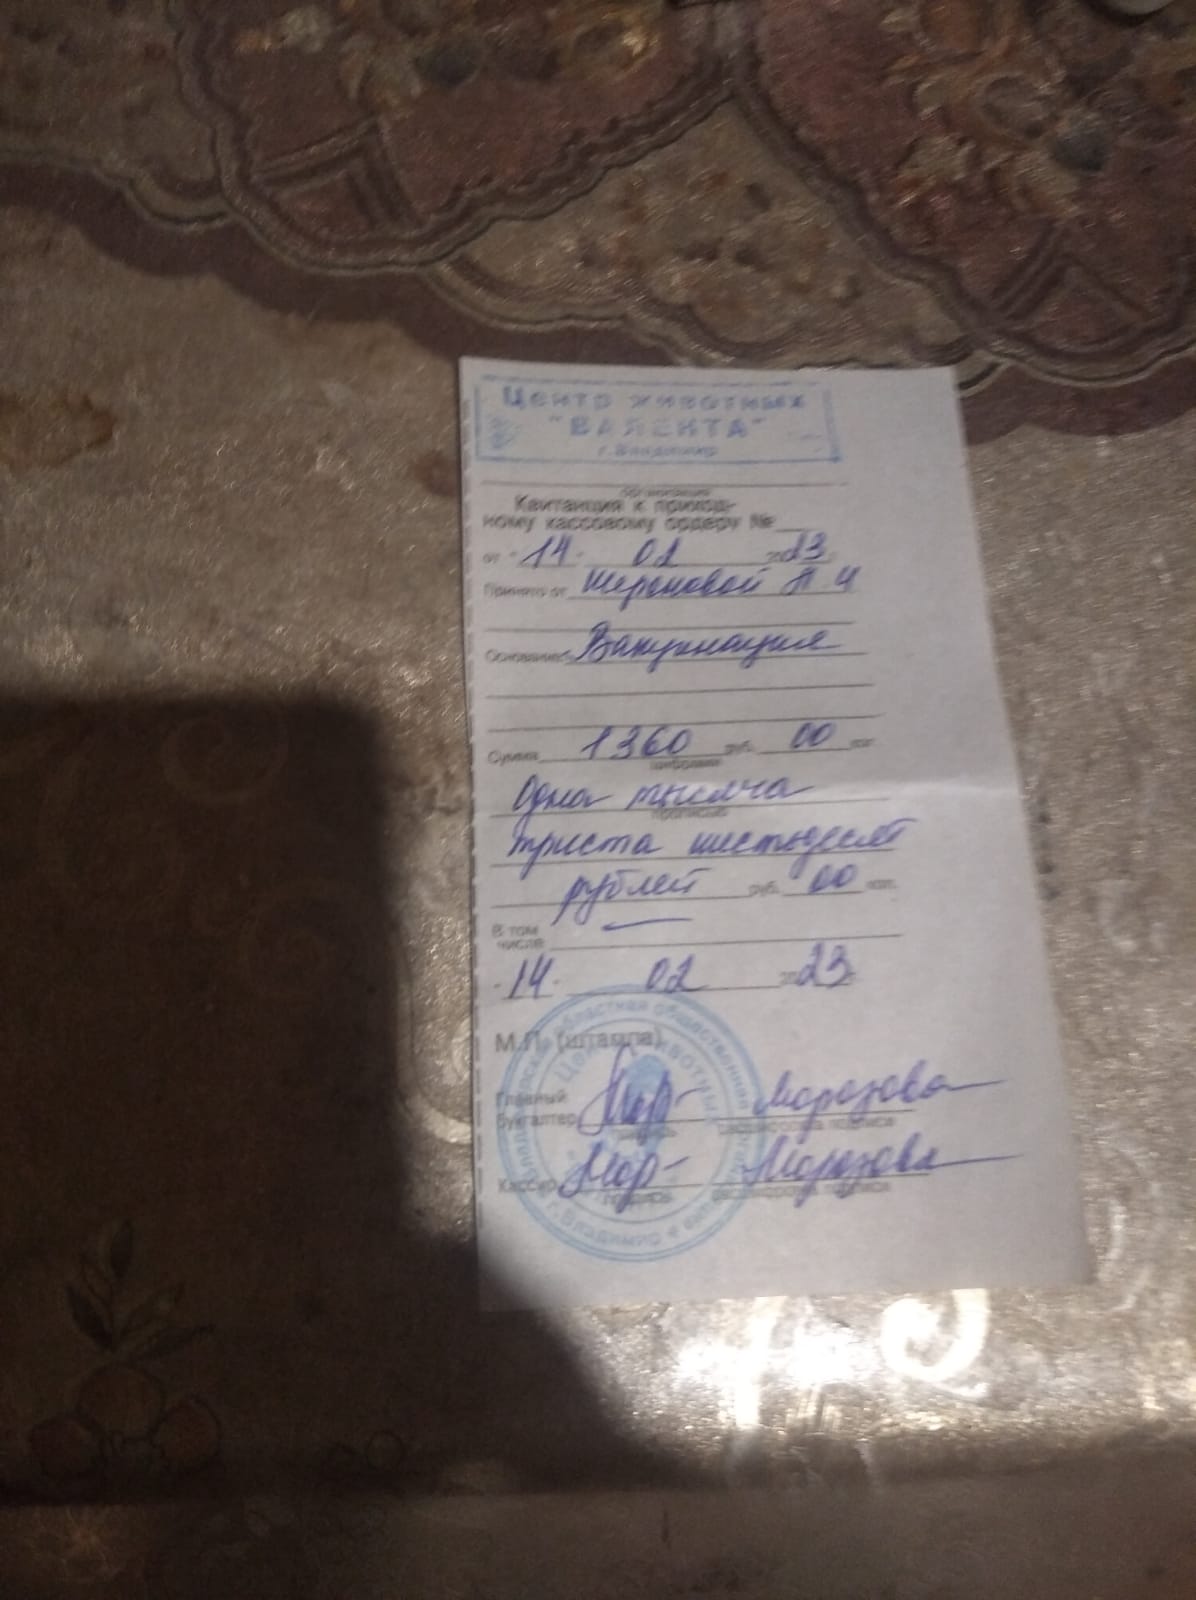 Центр животных
"ВАЛЕНТА"
г. Владимир
организация
Квитанция к приход-
ному кассовому ордеру №
от "14" 02 2023 г.
Принято от
Основание Вакцинация
Сумма 1360 руб. 00 коп.
цифрами
Одна тысяча
прописью
триста шестьдесят
рублей руб. 00 коп.
В том
числе
"14" 02 2023 г.
М.П. (штампа)
Главный
бухгалтер Мор- Морозова
подпись расшифровка подписи
Кассир Мор- Морозова
подпись расшифровка подписи
областная общественная
г. Владимир